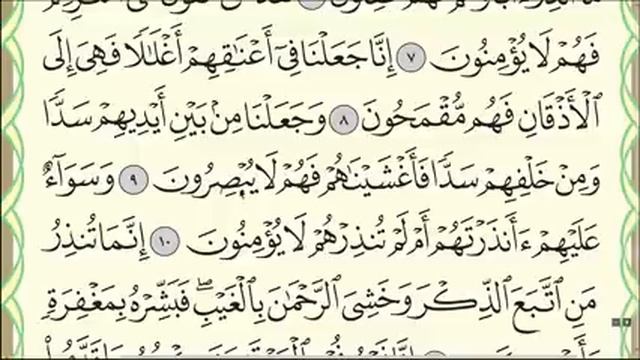 فَهُمْ لَا يُؤْمِنُونَ ٧ إِنَّا جَعَلْنَا فِىٓ أَعْنَـٰقِهِمْ أَغْلَـٰلًا فَهِىَ إِلَى
ٱلْأَذْقَانِ فَهُم مُّقْمَحُونَ ٨ وَجَعَلْنَا مِنۢ بَيْنِ أَيْدِيهِمْ سَدًّا
وَمِنْ خَلْفِهِمْ سَدًّا فَأَغْشَيْنَـٰهُمْ فَهُمْ لَا يُبْصِرُونَ ٩ وَسَوَآءٌ
عَلَيْهِمْ ءَأَنذَرْتَهُمْ أَمْ لَمْ تُنذِرْهُمْ لَا يُؤْمِنُونَ ١٠ إِنَّمَا تُنذِرُ
مَنِ ٱتَّبَعَ ٱلذِّكْرَ وَخَشِىَ ٱلرَّحْمَـٰنَ بِٱلْغَيْبِ ۖ فَبَشِّرْهُ بِمَغْفِرَةٍ